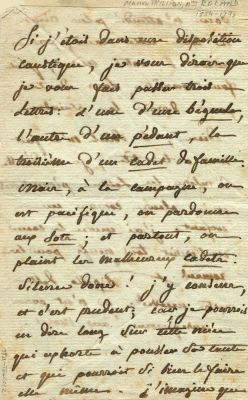 Si j'étois dans une disposition
caustique, je vous dirois que
je vous fais passer trois
lettres: l'une d'une bégueule,
l'autre d'un pédant, la
troisième d'un cadet de famille.
Mais, à la campagne, on
est pacifique, on pardonne
aux sots; et partout, on
plaint les malheureux cadets.
Silence donc! j'y consens,
et c'est prudent; car je pourrois
en dire long sur cette mère
qui à pousser sa
et qui pourroit si bien le faire
elle même j'imagine que